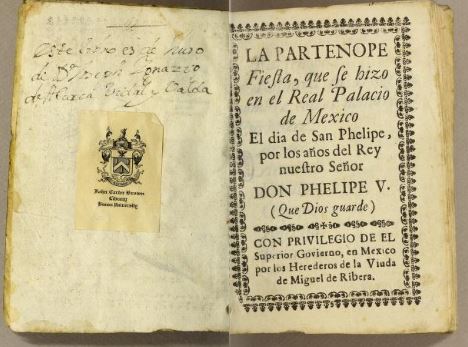 Este libro es de
de Dn
de
John Carter Brown
Library
Brown University
LA PARTENOPE
Fiesta, que se hizo
en el Real Palacio
de Mexico
El dia de San Phelipe,
por los años del Rey
nuestro Señor
DON PHELIPE V.
(Que Dios guarde)
CON PRIVILEGIO DE EL
Superior Govierno, en Mexico
por los Herederos de la Viuda
de Miguel de Ribera.